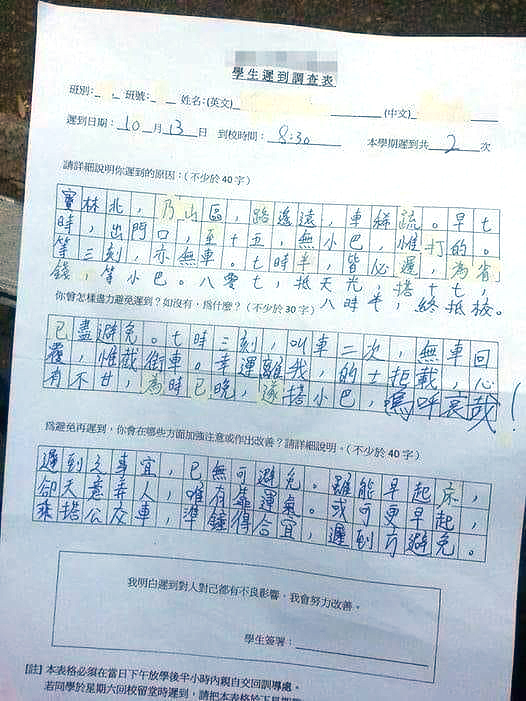 學生遲到調查表
班別： 班號： 姓名：(英文) (中文)
遲到日期： 10 月 13 日 到校時間： 8:30 本學期遲到共 2 次
請詳細說明你遲到的原因：(不少於 40 字)
寶林北，乃山區，路遙遠，車稀疏。早七
時，出門口，至十五，無小巴，惟打的。
等三刻，亦無車。七時半，皆必遲，為省
錢，等小巴。八零七，抵天光，搭十七，
八時半，終抵校。
你曾怎樣盡力避免遲到？如沒有，爲什麼？ (不少於 30 字)
已盡避免。七時三刻，叫車二次，無車回
覆，惟截街車。幸運離我，的士拒載，心
有不甘，為時已晚，遂搭小巴，嗚呼哀哉！
爲避免再遲到，你會在哪些方面加強注意或作出改善？請詳細說明。(不少於 40 字)
遲到之事宜，已無可避免。雖能早起床，
卻天意弄人，唯有靠運氣。或可更早起，
乘搭公交車，準鐘得合宜，遲到可避免。
我明白遲到對人對己都有不良影響，我會努力改善。
學生簽署：
[註] 本表格必須在當日下午放學後半小時內親自交回訓導處。
若同學於星期六回校留堂時遲到，請把本表格於下星期